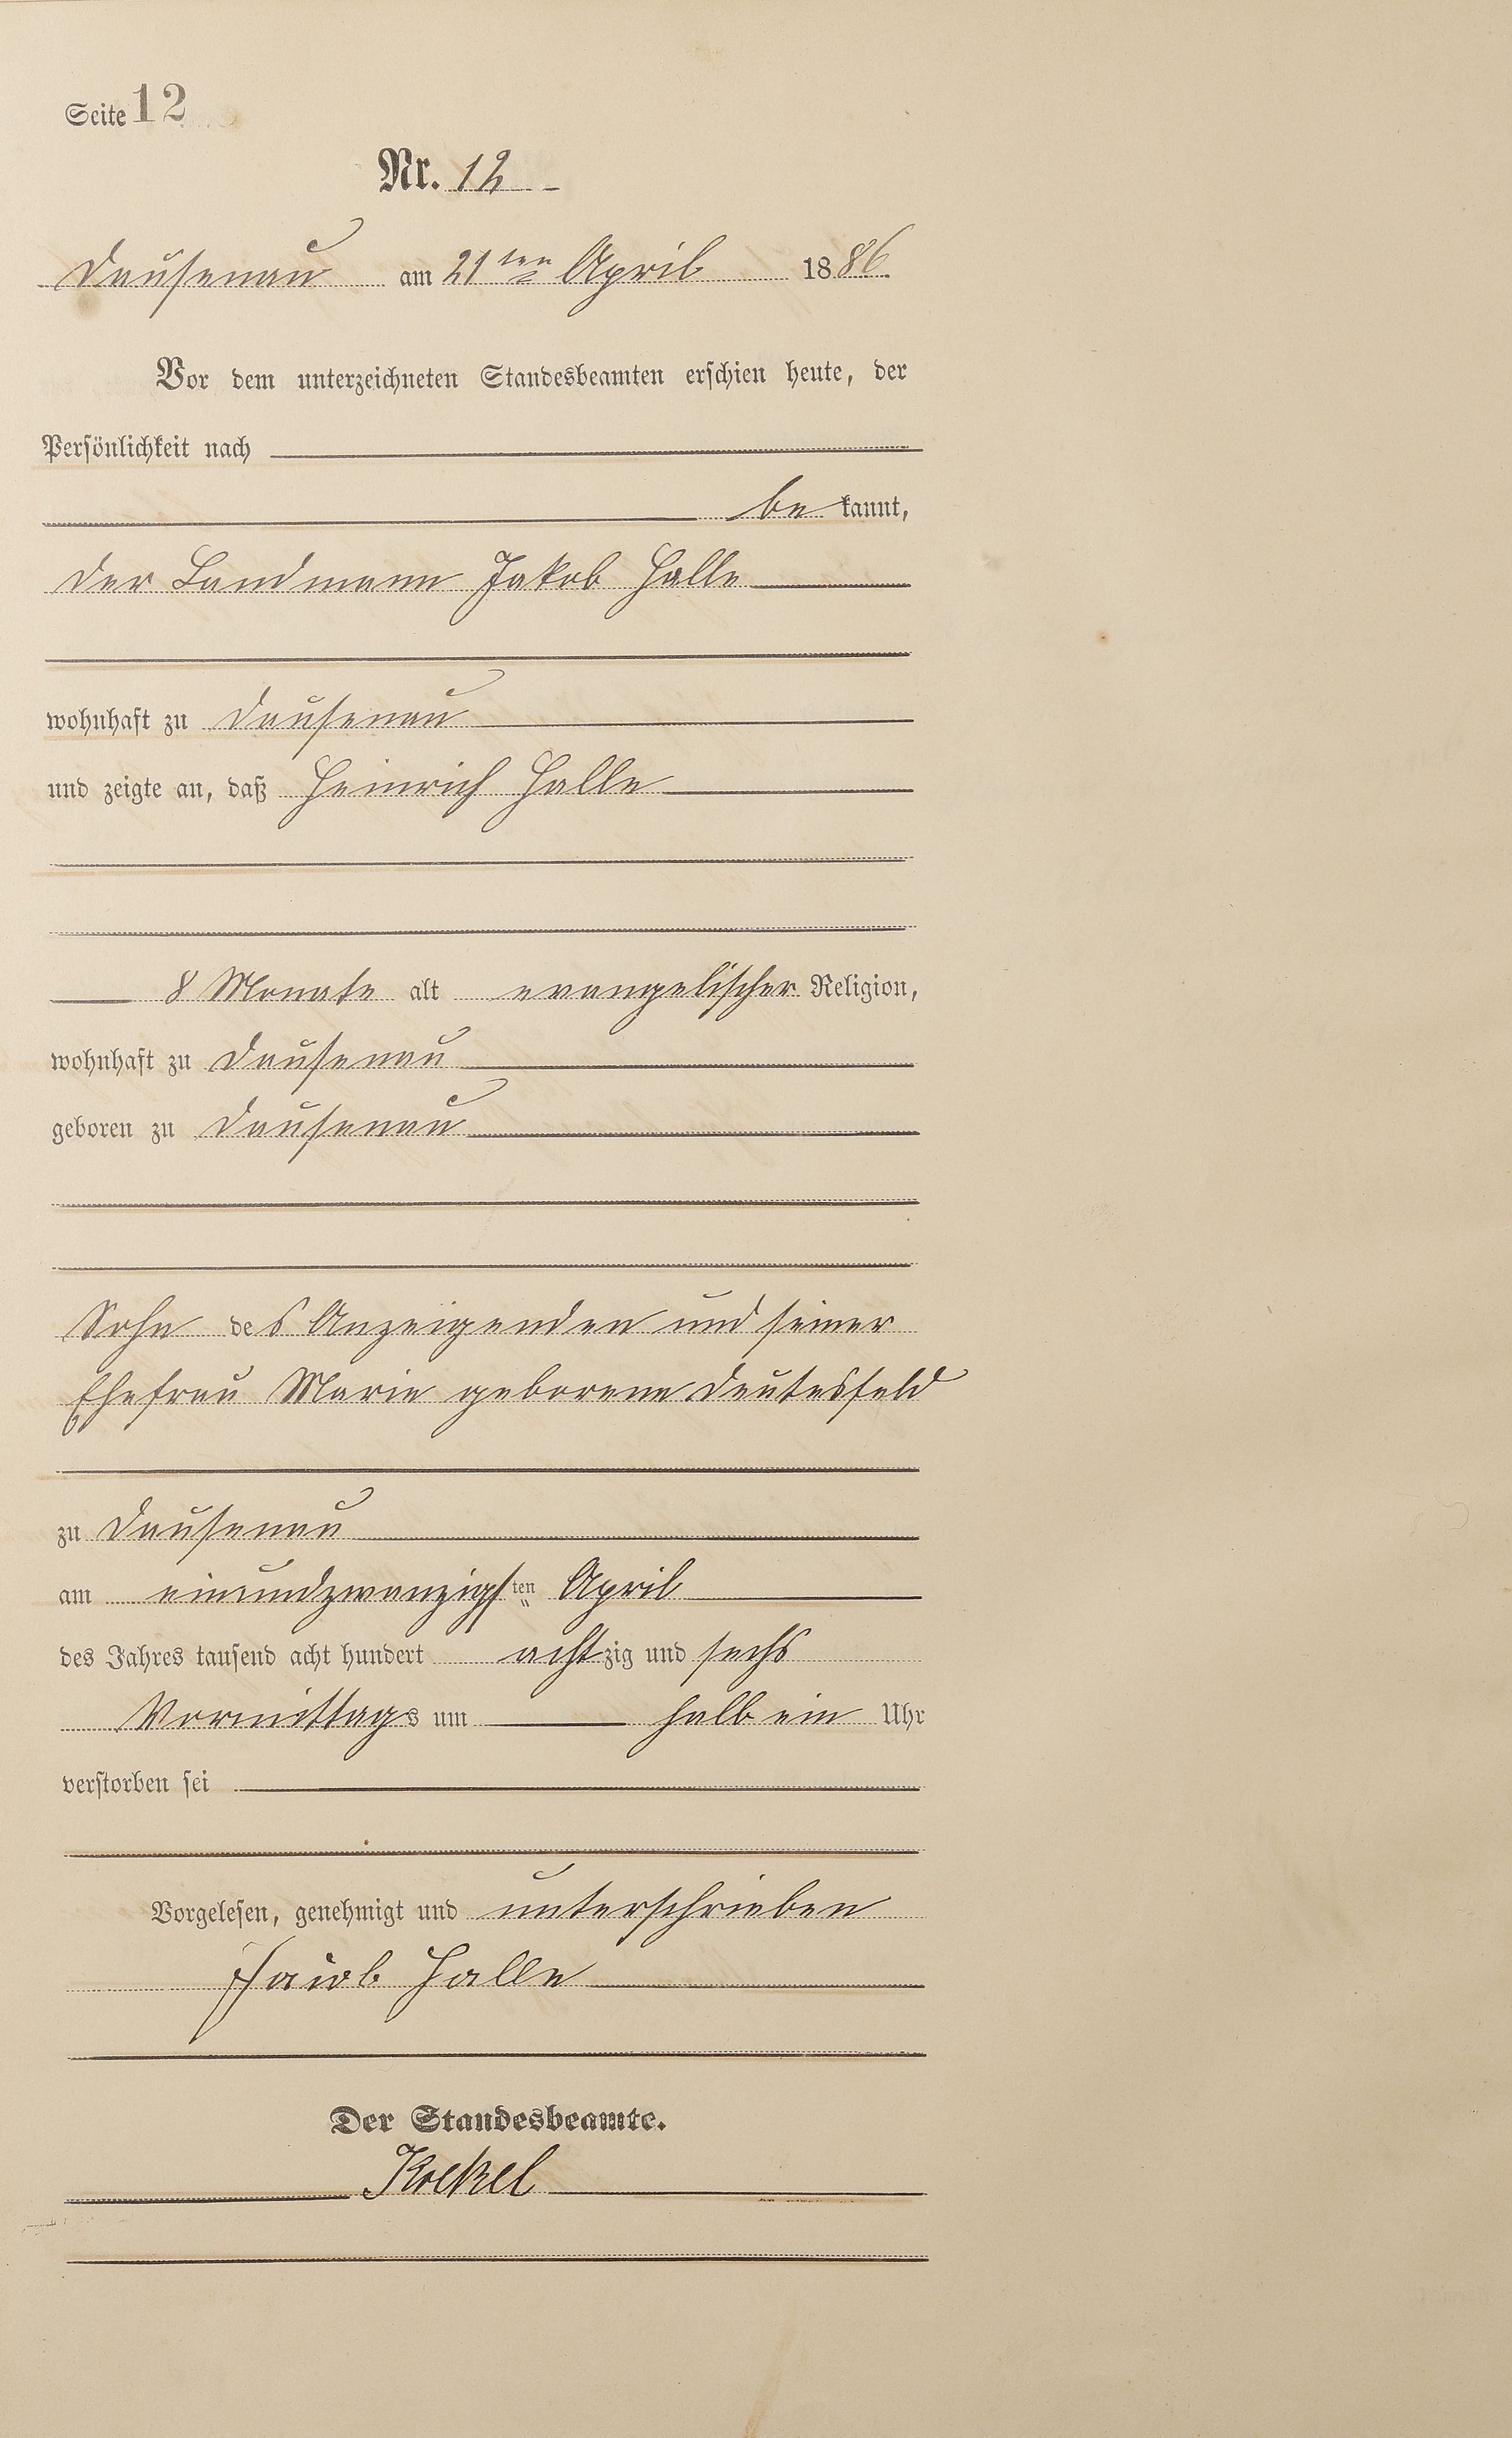 Seite 12
Nr. 12
Dausenau am 21ten April 1886
Vor dem unterzeichneten Standesbeamten erschien heute, der
Persönlichkeit nach
be kannt,
der Landmann Jakob Halle
wohnhaft zu Dausenau
und zeigte an, daß Heinrich Halle
8 Monate alt evangelischer Religion,
wohnhaft zu Dausenau
geboren zu Dausenau
Sohn des Anzeigenden und seiner
Ehefrau Marie geborene Deutesfeld
zu Dausenau
am einundzwanzigsten April
des Jahres tausend acht hundert achtzig und sechs
Vormittags um halb ein Uhr
verstorben sei
Vorgelesen, genehmigt und unterschrieben
Halle
Der Standesbeamte.